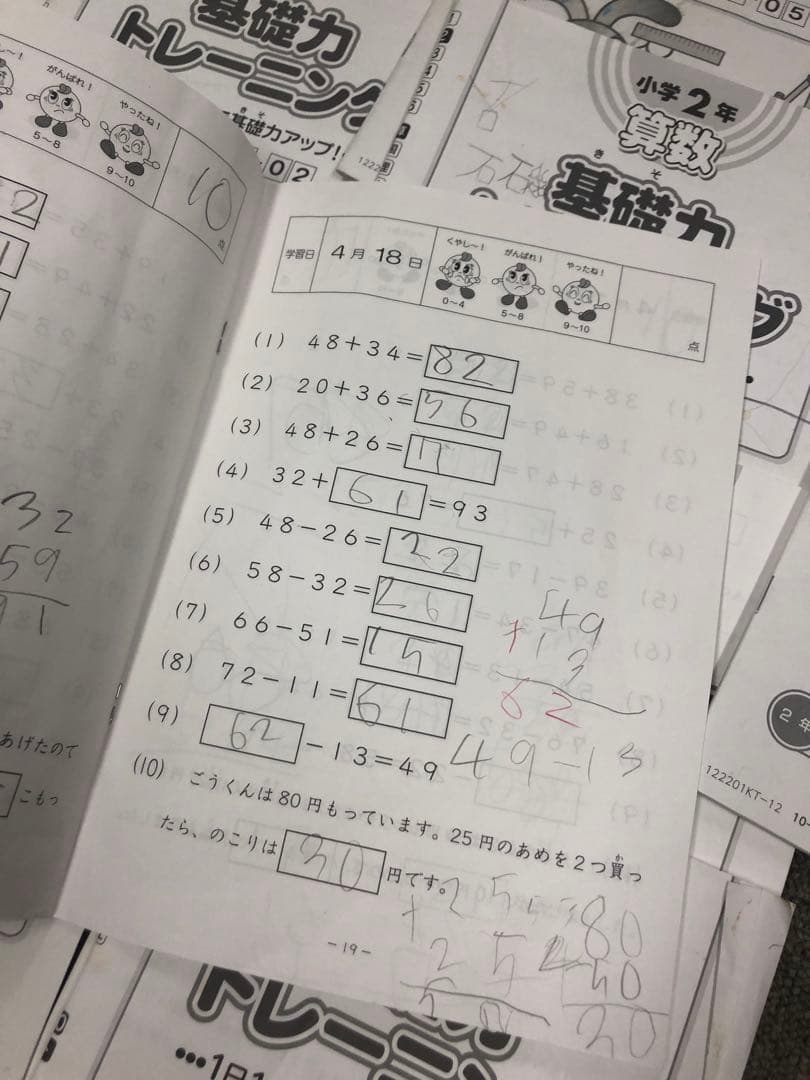 基礎力
トレーニング
基礎力アップ!
02
05
小学2年
算数
きそ
基礎力
がんばれ! やったね!
5~8 9~10
10 点
学習日 4月18日 くやし~! がんばれ! やったね!
0~4 5~8 9~10 点
(1) 48+34=82
(2) 20+36=56
(3) 48+26=
(4) 32+61=93
(5) 48-26=22
(6) 58-32=26
(7) 66-51=15
(8) 72-11=61
(9) 62-13=49
49
+13
62
49-13
(10) ごうくんは80円もっています。25円のあめを2つ買っ
か
たら、のこりは30円です。
25
+25
50
80
50
30
-19-
32
59
91
あげたので
こもっ
2年
122201KT-12
トレーニン